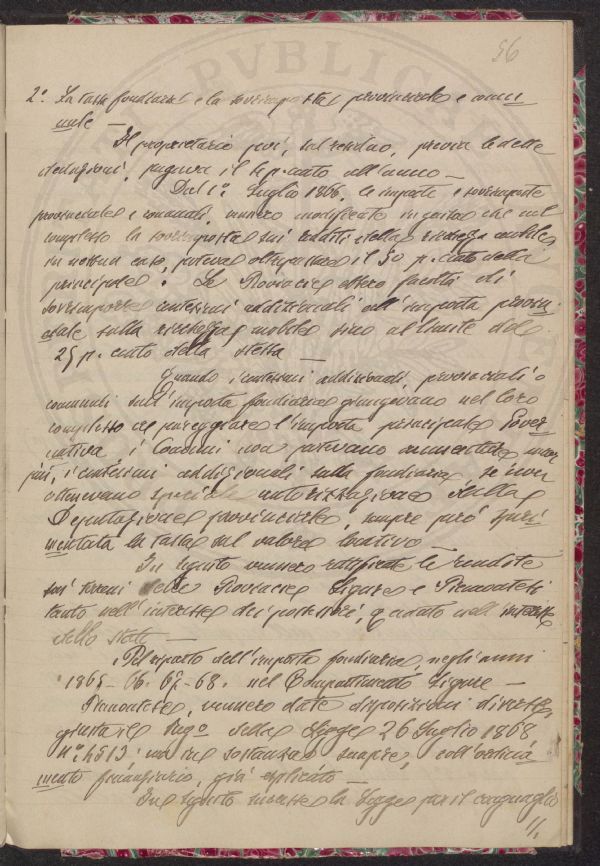 56
2.° La tassa fondiaria e la sovrimposta provinciale e comu
nale —
Il proprietario poi, sul reddito, previa le dette
deduzioni, pagava il 4 p. cento all'anno —
Dal 1.° Luglio 1866, le imposte e sovrimposte
provinciali e comunali, vennero modificate in guisa che nel
complesso la sovrimposta sui redditi della ricchezza mobile,
in nessun caso, poteva oltrepassare il 50 p. cento della
principale. Le Provincie ebbero facoltà di
sovrimporre centesimi addizionali all'imposta provin
ciale sulla ricchezza mobile sino al limite del
25 p. cento della stessa —
Quando i centesimi addizionali, provinciali o
comunali sull'imposta fondiaria giungevano nel loro
complesso a pareggiare l'imposta principale Gover
nativa, i Comuni non potevano aumentare
più, i centesimi addizionali sulla fondiaria, se non
ottenevano speciale autorizzazione dalla
Deputazione provinciale, sempre però speri
mentata la tassa sul valore locativo —
In seguito vennero rettificate le rendite
sui terreni delle Provincie Liguri e Piemontesi
tanto nell'interesse dei possessori, quanto nell'interesse
dello Stato —
Pel riparto dell'imposta fondiaria, negli anni
1865-66-67-68 nel Compartimento Ligure —
Piemontese, vennero date disposizioni diverse,
giusta il Reg° della Legge 26 Luglio 1868
N° 4513 ma in sostanza sempre, coll'ordina
mento finanziario, già esplicato —
In seguito successe la Legge per il conguaglio
//.